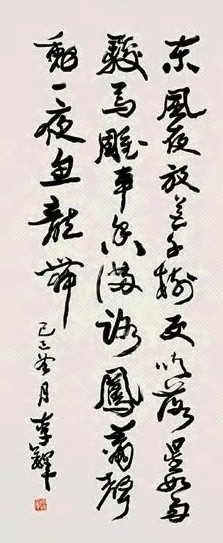 东風夜放花千樹更吹落星如雨
駿马雕車香满路鳳萧聲
動一夜鱼龍舞
己丑冬月李輝